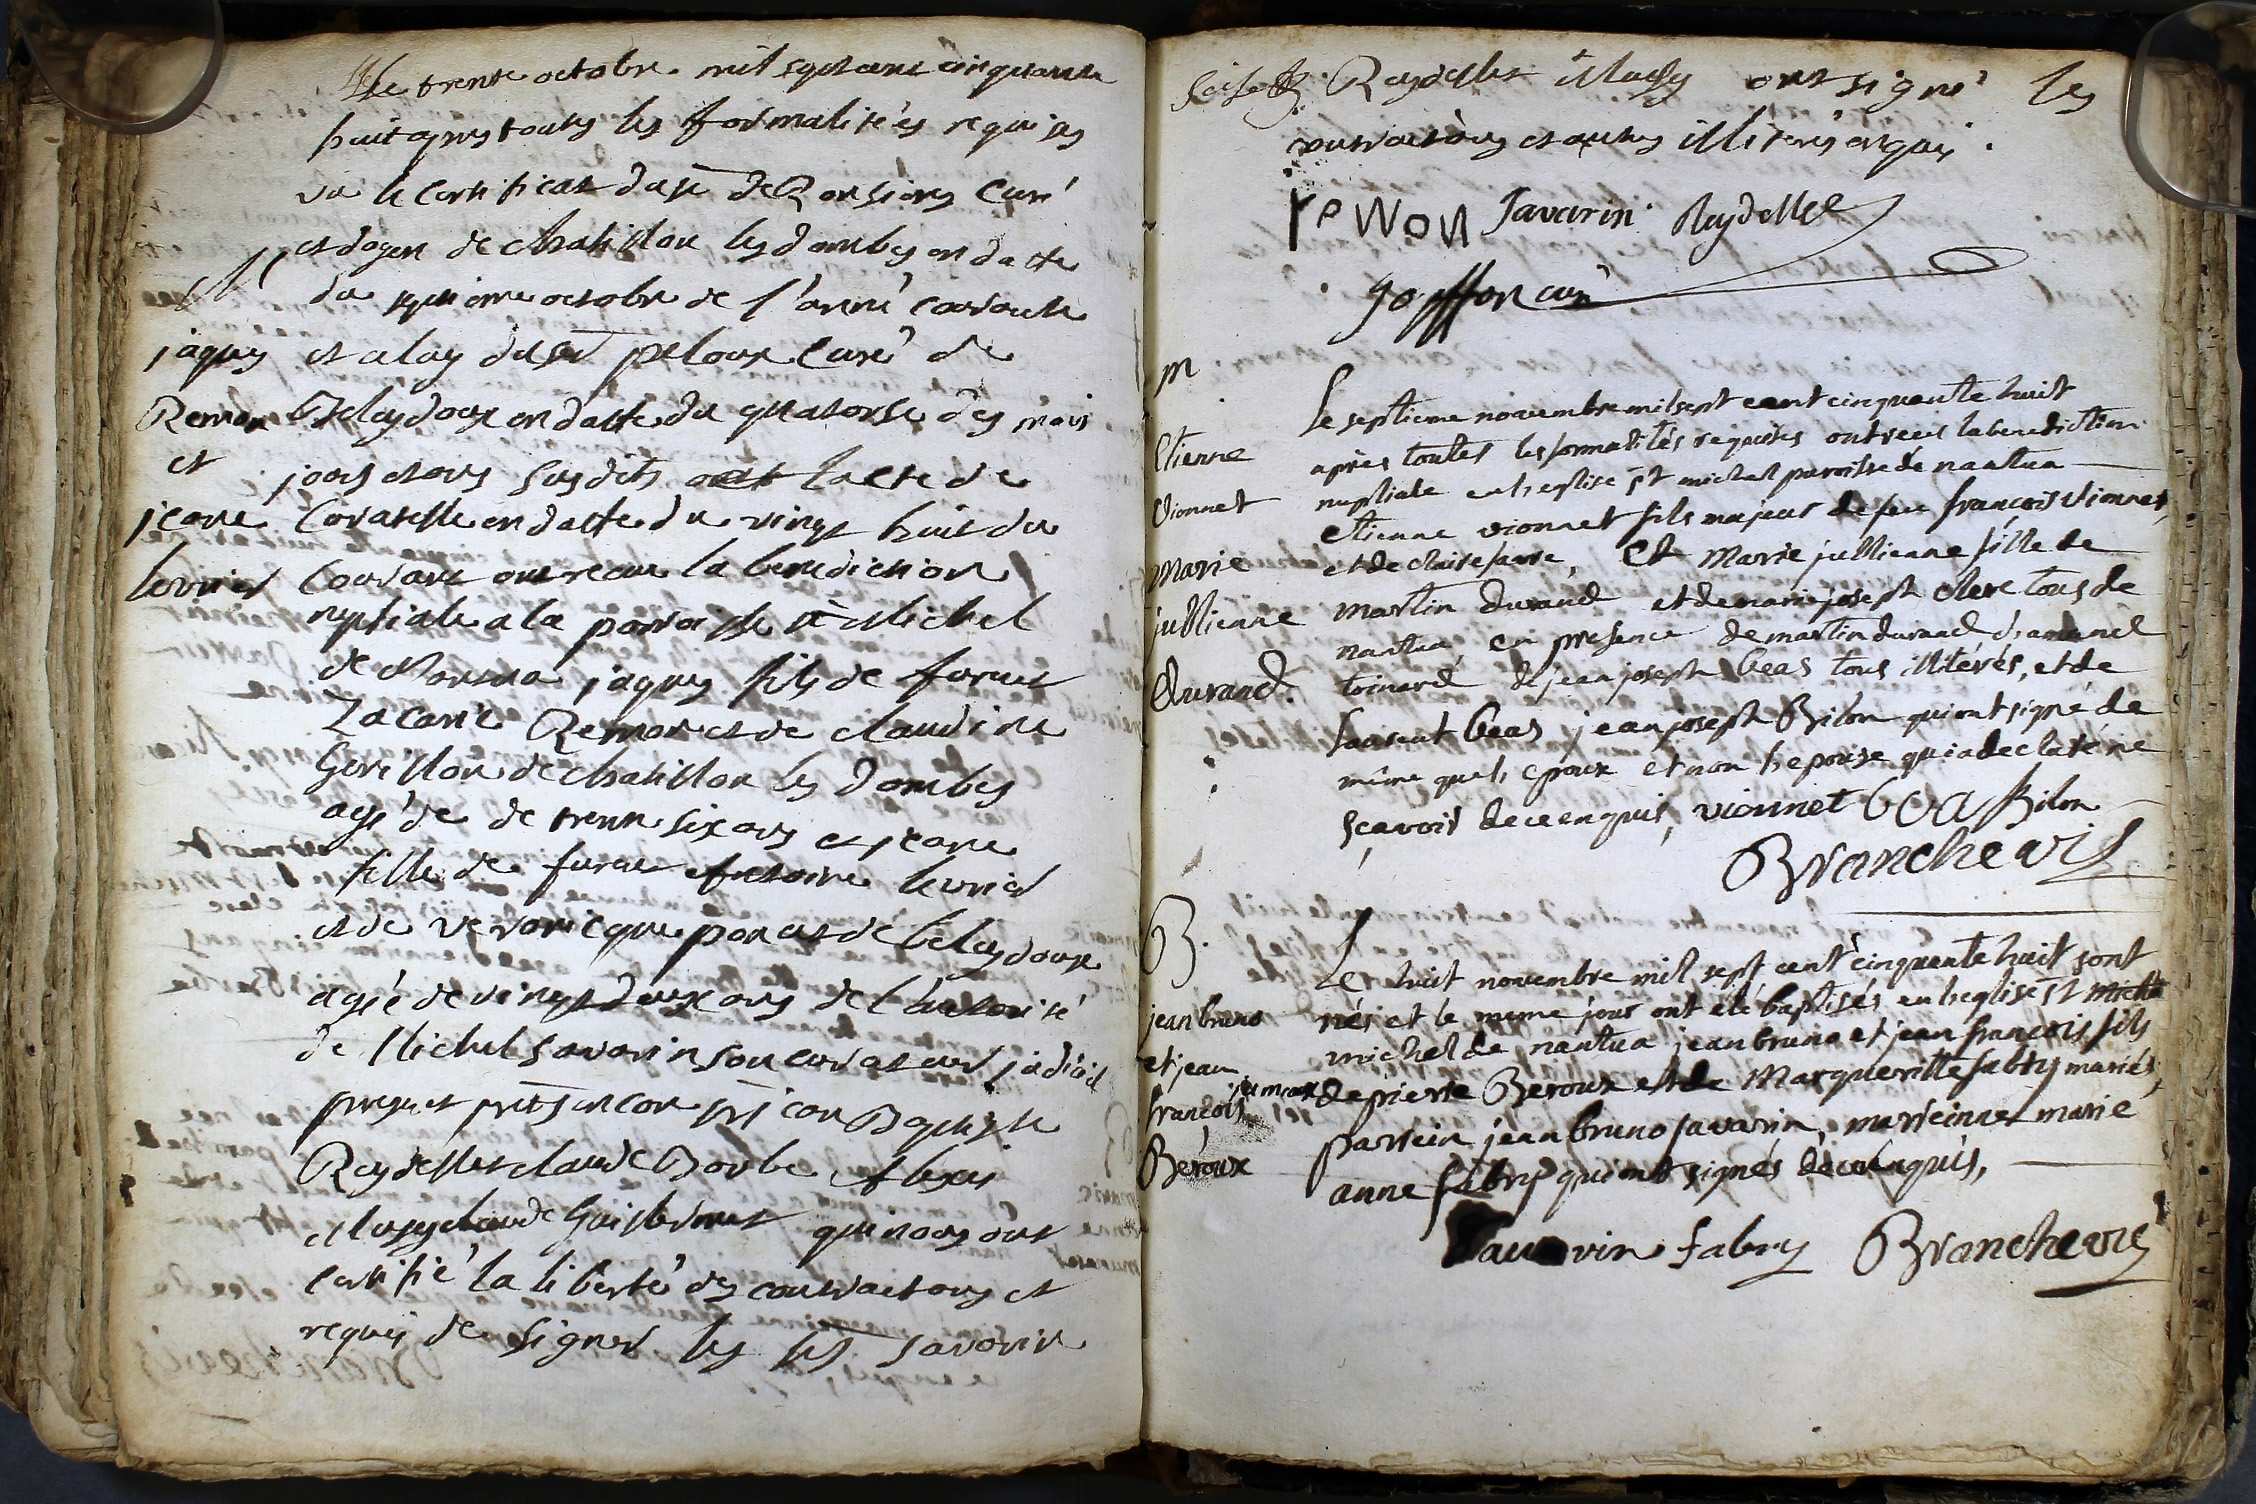 Le trente octobre mil sept cent cinquante
huit apres toutes les formalitées requises
vu le certificat du sr curé
et doyen de chatillon les dombes en datte
du septieme octobre de l'anné courante
M
et aluy du sr peloux curé de
Belaydoux en datte du quatorse des mois
jours et ans susdits lacte de
Curatelle en datte du vingt huit du
courant ont recue la benediction
nuptiale a la paroisse st Michel
de Nantua jaques fils de furent
Zacarie Remon et de claudine
Gerillon de chatillon les dombes
agé de de trente six ans et jeane
fille de furent Antoine levrier
et de veronique poncet de belaydoux
agée de vingt deux ans de l'autorité
de Michel savarin son curateur
presents encor jean Baptiste
Reydellet claude Borbe Alexis
Mussy claude Guillermet qui nous ont
certifié la liberté des contractans et
requis de signer les srs savarin
jaques
Remon
et
jeane
levrier
Reydellet Mussy ont signé les
contractans et autres illiterés enquis.
remon Savarin Reydellet
goffon curé
m
Etienne
Vionnet
Marie
jullienne
Durand.
Le septieme novembre mil sept cent cinquante huit
apres toutes les formalités requises ont receu la benediction
nuptiale en l'eglise st michel paroisse de nantua
etienne vionnet fils majeur de feu francois vionnet,
et de claire farre, Et Marie jullienne fille de
martin durand et de marie joseph clerc tous de
nantua, en presence de martin durand
de jean joseph beas tous illiterés, et de
laurent beas jean joseph Bilon qui ont signé de
même que l'epoux et non l'epouse qui a declaré ne
sçavoir de ce enquis, vionnet bea Bilon
Branche vic
B.
jean bruno
et jean
françois jumeaux
Beroux
Le huit novembre mil sept cent cinquante huit sont
nés et le meme jour ont été baptisés en l'eglise st
michel de nantua jean bruno et jean francois fils
de pierre Beroux et de Marguerittte fabry mariés,
parrein jean bruno savarin, marreinne marie
anne fabry qui ont signés de ce enquis,
Sauvarin fabry Branche vic